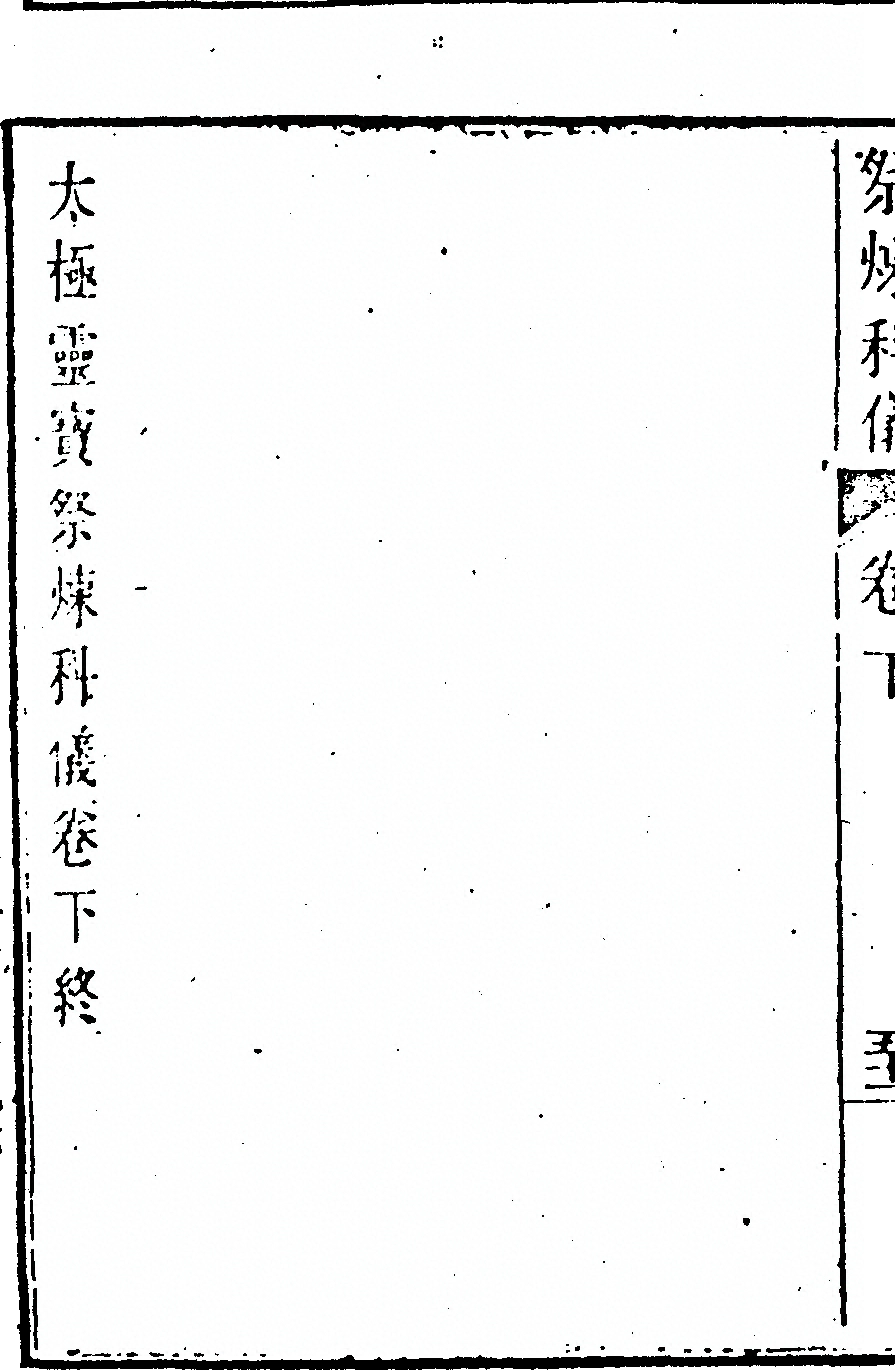 祭煉科儀 卷下
太極靈寶祭煉科儀卷下終